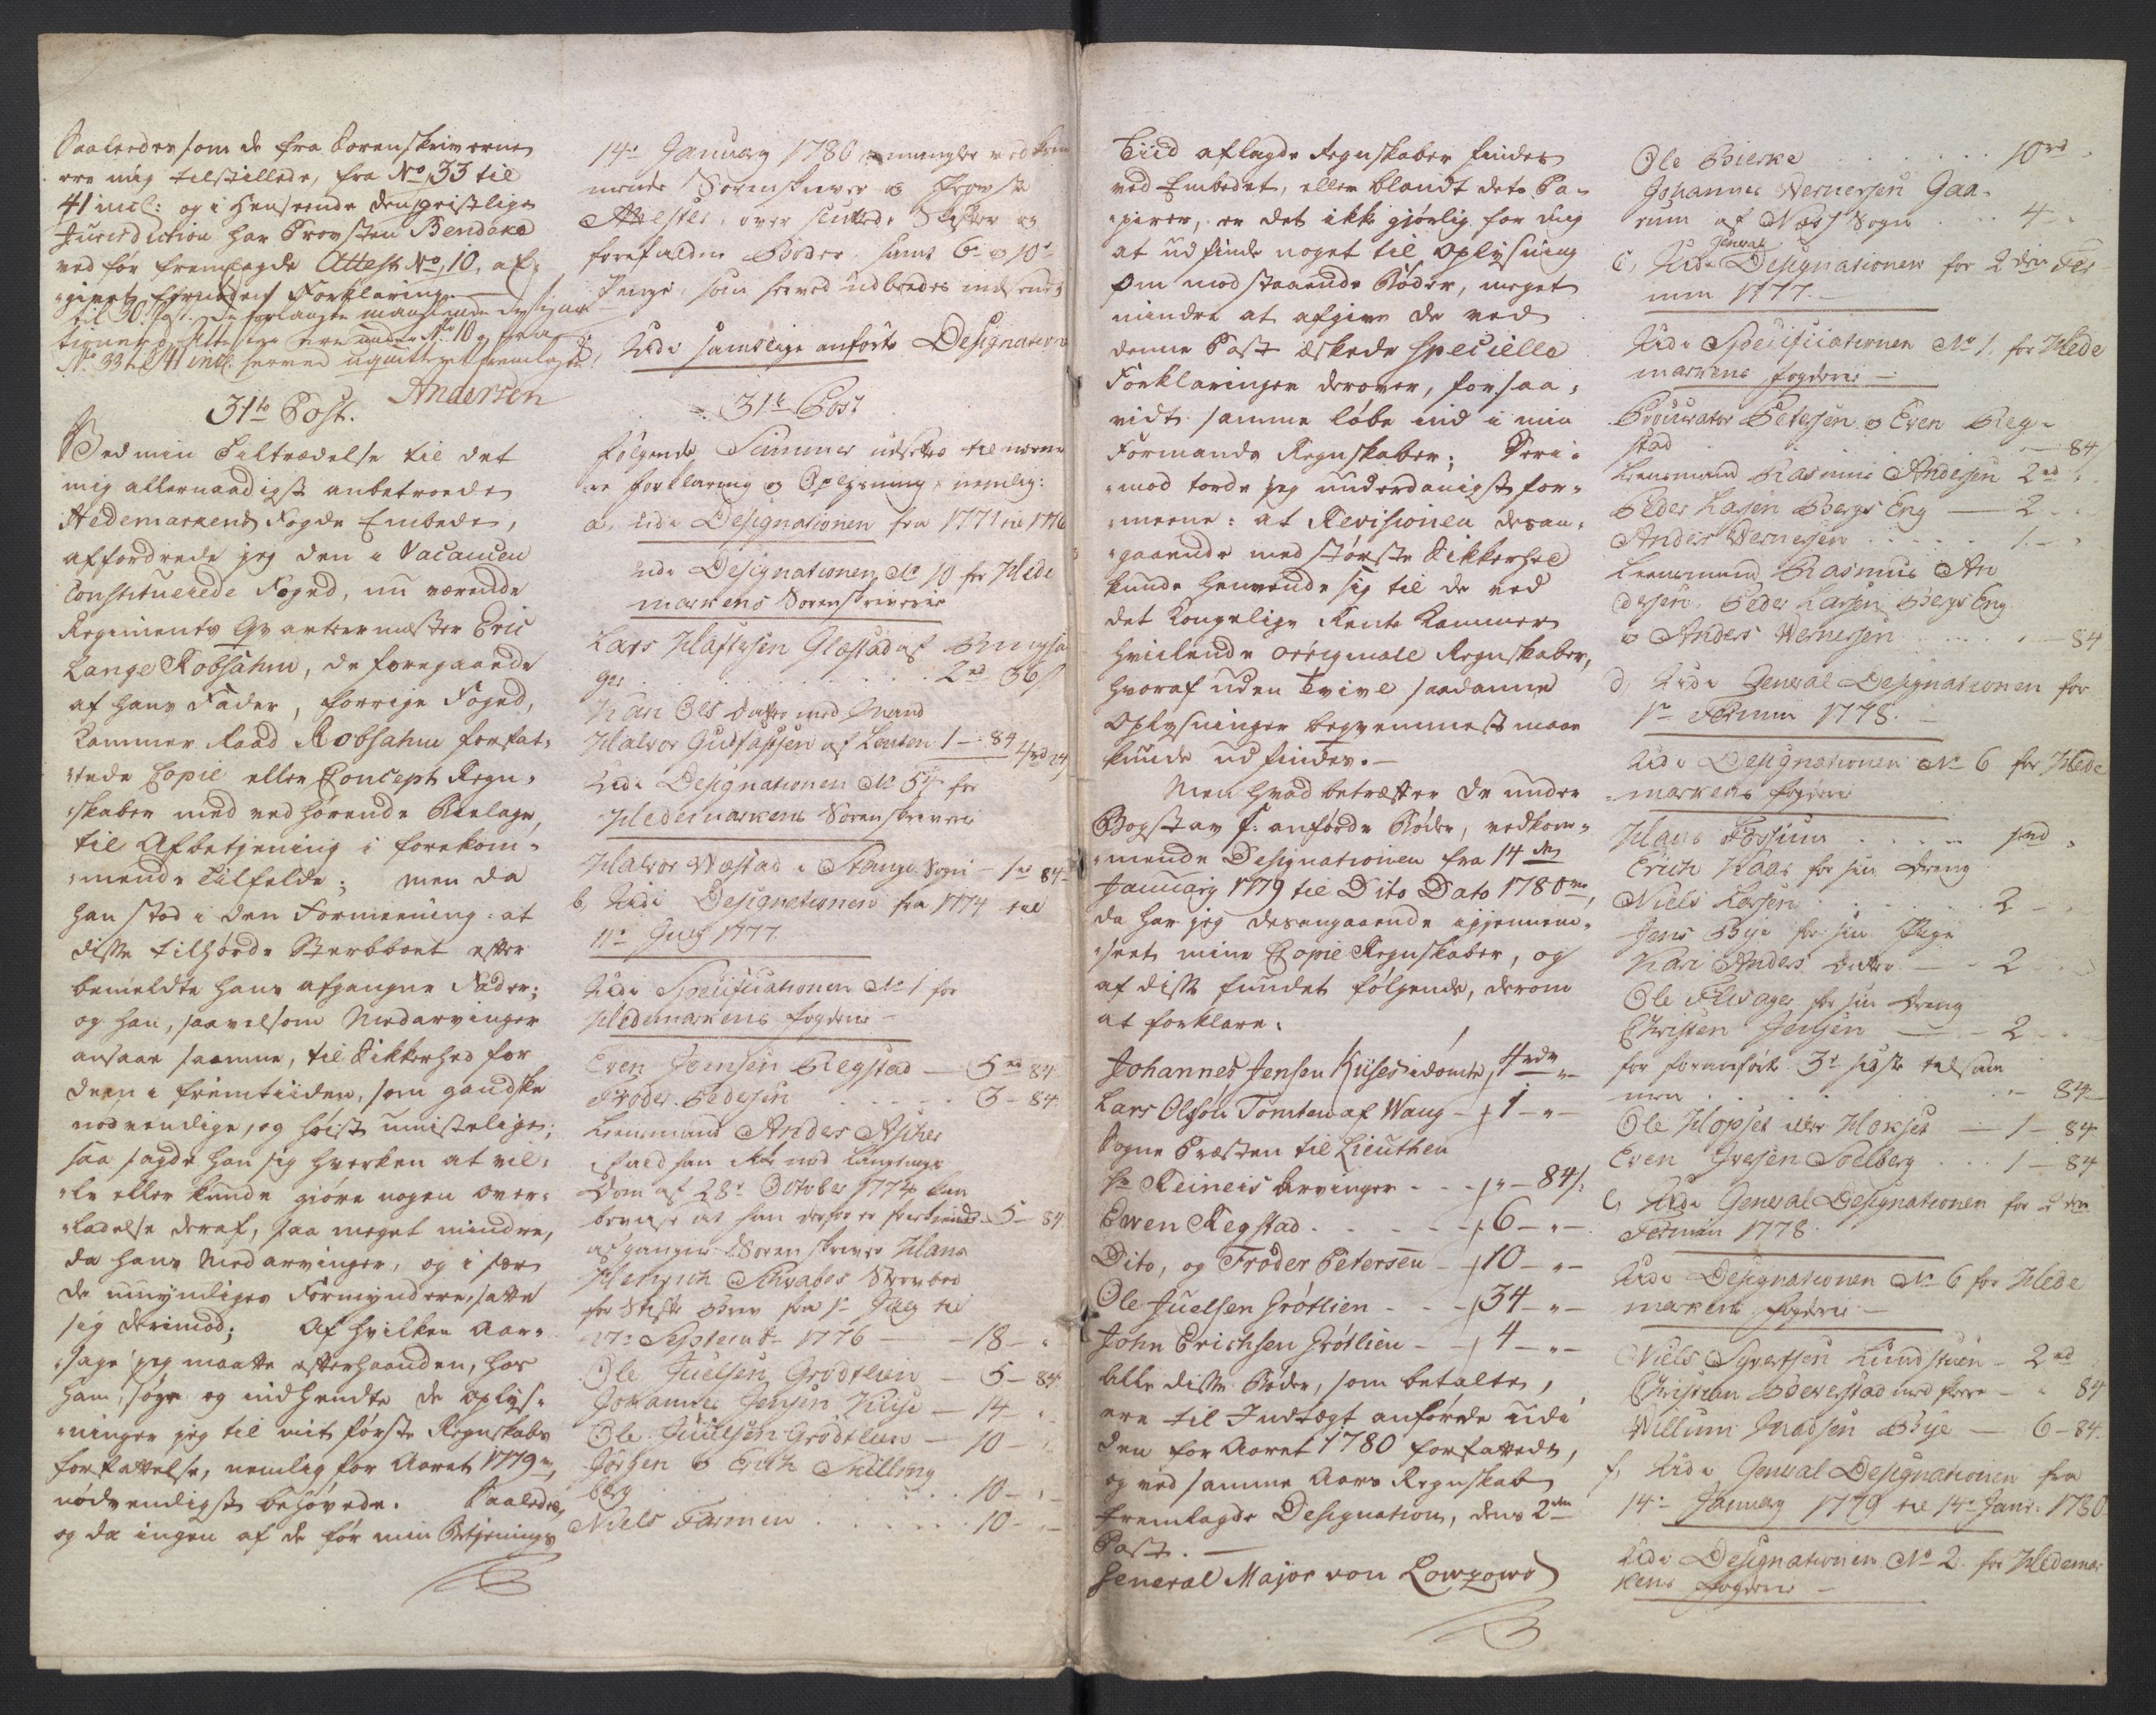 Saaleedes som de fra Sorenskriverne
ere mig tilstillede, fra No. 33 til
41 incl: og i henseende den geistlige
Jurisdiction har Provsten Bendeke
ved før fremlagde Attest No. 10, af-
givet fornøden Forklaring.
til 30 Post. De forlangte manglende Designa-
tioner Attester ere under No. 10 og fra
No. 33 til 41 incl. herved
Andersen
31te Post.
Ved min Tiltrædelse til det
mig allernaadigst anbetroede
Hedemarkens Fogde Embede,
affordrede jeg den i Vacancen
Constituerede Foged, nu værende
Regiments Qvarteermester Eric
Lange Robsahm, de foregaaende
af hans Fader, forrige Foged,
Kammer Raad Robsahm forfat-
tede Copie eller Concept Regn-
skaber med vedhørende Bielage,
til Afbetjening i forekom-
mende Tilfelde; men da
han stod i den Formeening: at
disse tilhørde Sterbboet efter
bemeldte hans afgangne Fader;
og han, saavelsom Medarvinger
ansaae samme, til Sikkerhed for
dem i fremtiiden, som gandske
nødvendige, og høist umistelige;
saa sagde han sig hverken at vil-
le eller kunde gjøre nogen over-
ladelse deraf, saa meget mindre,
da hans Medarvinger, og i sær
de umyndiges Formyndere, satte
sig derimod; Af hvilken Aar-
sage jeg maatte efterhaanden, hos
ham, søge og indhendte de Oplys-
ninger jeg til mit første Regnskabs
forfattelse, nemlig for Aaret 1779
nødvendigst behøvede. Saaledes,
og da ingen af de før min Betjenings
14de Januarii 1780 mangler vedkom
mende Sorenskriver og Provste
Attester, over sluttede Skifter og
forefaldne Bøder, samt 6te og 10de
Penge, som herved udbeedes indsendt
Udi samtlige anførte Designation
31te Post
Følgende Summer udsettes til nærme
re forklaring og Oplysning, nemlig:
a, udi Designationen fra 1771 til 1776
udi Designationen No 10 for Hede
markens Sorenskriverie
Lars Haftesen Glæstad af Ringsa
ger . . . 2rd 36s
Kari Ols datter med Mand
Halvor Gulfassen af Leuten 1 - 84 4rd 24
Udi Designationen No 54 for
Hedemarkens Sorenskriverie
Halvor Wæstad i Stange Sogn - 1rd 84
b, Udi Designationen fra 1774 til
11te July 1777.
Udi Specificationen No 1 for
Hedemarkens fogderie
Even Jensen Regstad — 5rd 84
Frøder Pedersen . . . 3 - 84
Lensmand Anders Ascher
ifald han ikke med Laugtings
Dom af 28de October 1774 kan
bevise at han derfor er frikiendt 5 - 84
afgangen Sorenskriver Hans
Henrich Schvabes Sterbboe
for Skifte Brev fra 1te July til
17de Septembr 1776 — 18 -
Ole Juelsen Grødtlien — 5 - 84
Johannes Jensen Kiise — 14 -
Ole Juelsen Grødtlien — 10 -
Jørgen & Erich Skilling
berg . . . 10 -
Niels Farmen . . . 10 -
Tiid aflagde Regnskaber findes
ved Embedet, eller blandt dets Pa-
pirer, er det ikke gjørlig for mig
at udfinde noget til Oplysning
om modstaaende Bøder, meget
mindre at afgive de ved
denne Post æskede Specielle
Forklaringer derover, forsaa-
vidt samme løbe ind i min
Formands Regnskaber; Deri-
mod torde jeg underdanigst for-
meene: at Revisionen desan-
gaaende med største Sikkerhed
kunde henvende sig til de ved
det Kongelige Rente Kammer
hvilende originale Regnskaber,
hvoraf uden Tvivl saadanne
Oplysninger beqvemmest maae
kunde udfindes.
Men hvad betræffer de under
Bogstav f: anførde Bøder, vedkom-
mende Designationen fra 14den
Januarij 1779 til Dito Dato 1780,
da har jeg desangaaende igjennem-
seet mine Copie Regnskaber, og
af disse fundet følgende, derom
at forklare:
Johannes Jensen Kiises idømte, 4rdr „-
Lars Olsen Tomten af Wang - 1 - „-
Sogne Præsten til Lieuthen
Hr Reineis Arvinger - - „ - 84s:
Ewen Regstad - - - 6 - „-
Dito, og Frøder Petersen - 10 - „-
Ole Juelsen Grøtlien - - 34 - „-
John Erichsen Grøtlien - - 4 - „-
Alle disse Bøder, som betalte,
ere til Indtægt anførde udi
den for Aaret 1780 forfattede,
og ved samme Aars Regnskab
fremlagde Designation, dens 2den
Post. —
General Major von Lowzows
Ole Bierke . . . 10rd „
Johannes Wernersen Gaa-
rum af Næss Sogn . . . 4 „
c, Udi General Designationen for 2den Ter
min 1777.
Udi Specificationen No 1, for Hede
markens fogderie
Procurator Petersen & Even Reg-
stad . . . 84
Lensmand Rasmus Andersen 2rd
Peder Larsen Bergs Eng — 2 -
Anders Wernersen . . . 1 -
Lensmand Rasmus An
dersen, Peder Larsen Bergs Eng
& Anders Wernersen . . . 84
d, Udi General Designationen for
1te Termin 1778.
Udi Designationen No 6 for Hede
markens fogderie
Hans Fossum . . . 1rd „
Erich Kaas for sin Dreng
Niels Larsen . . . 2 -
Jens Bye for sin Pige
Kari Anders datter — 2 -
Ole for sin Dreng
Christen Jensen — 2 -
for foranførte 3de siste tilsam
men . . . 84
Ole Hopset eller Hoxset — 1 - 84
Even Iversen Soelberg . . 1 - 84
e, Udi General Designationen for 2den
Termin 1778.
Udi Designationen No 6 for Hede
markens fogderie
Niels Syvertsen Lundstuen - 2rd
Christian med flere - „ 84
Willum Madsen Bye — 6 - 84
f, Udi General Designationen fra
14de January 1779 til 14de Janr: 1780
Udi Designationen No 2. for Hedemar
kens fogderie